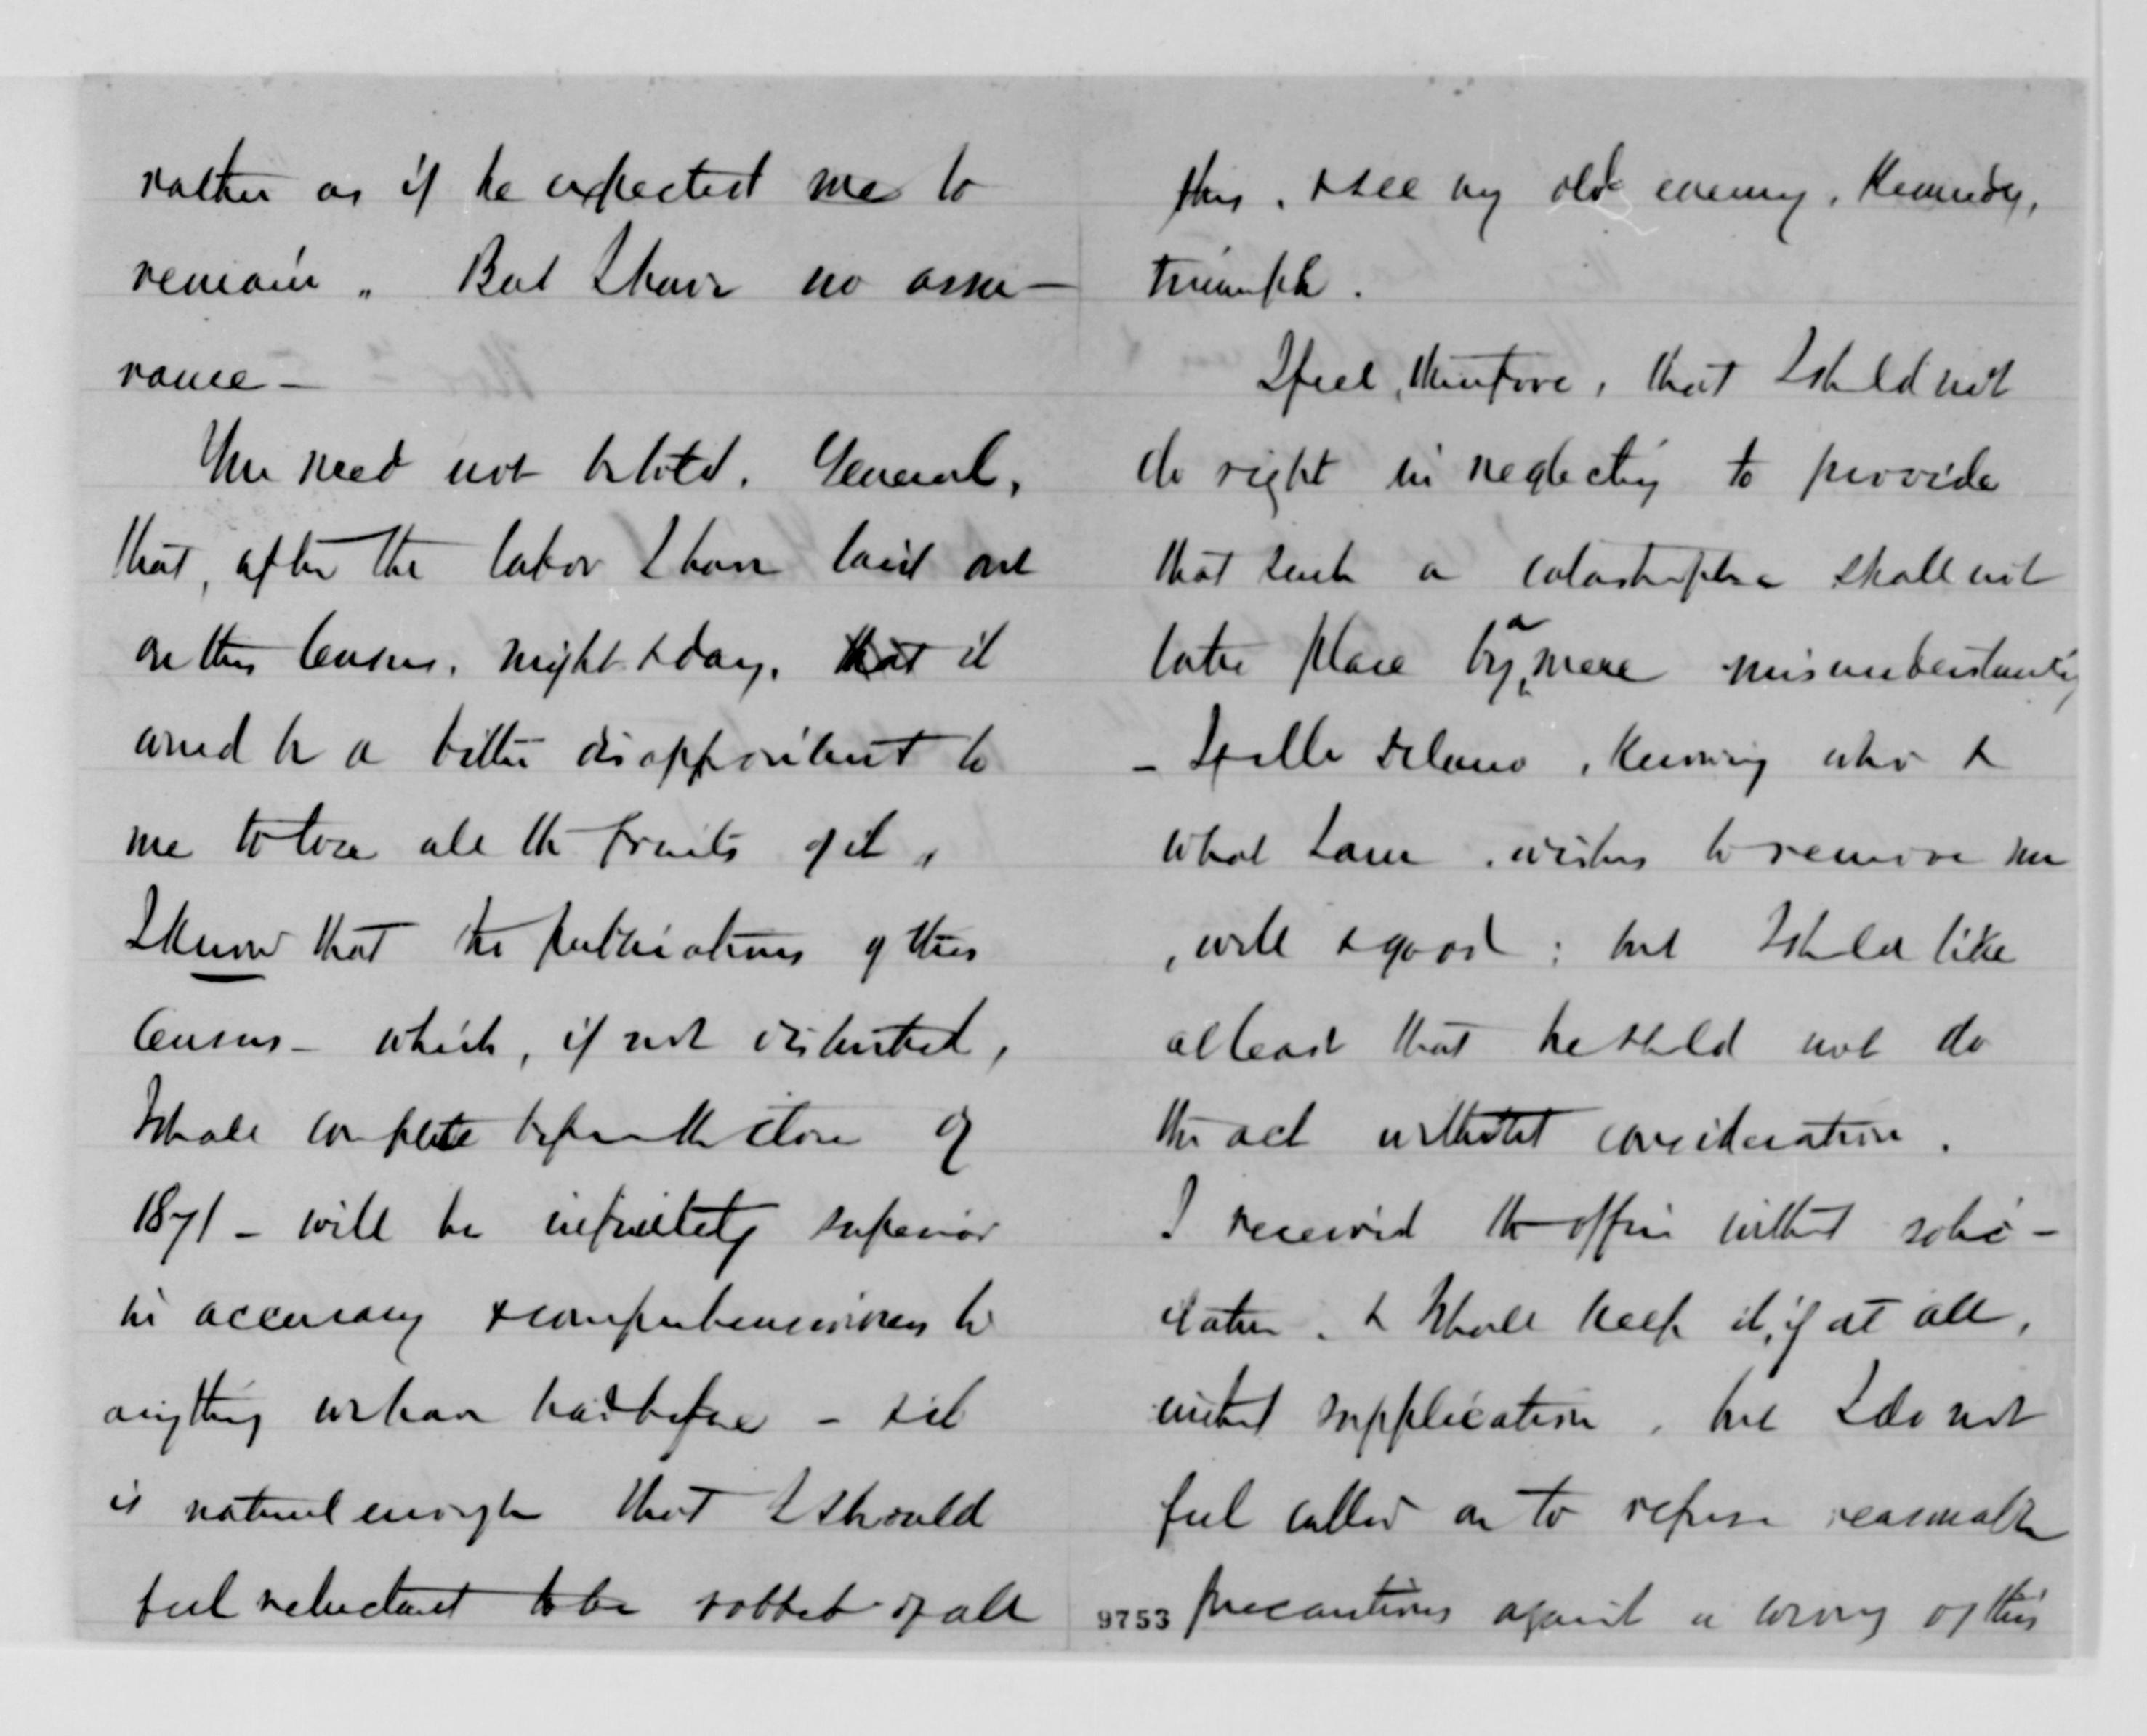 rather as if he expected me to
remain. But I have no assu-
rance -
You need not be told, General,
that, after the labor I have laid out
on this Census, night & day, that it
would be a bitter disappointment to
me to lose all the fruits of it.
I know that the publications of this
Census - which, if not disturbed,
I shall complete before the close of
1871 - will be infinitely superior
in accuracy & comprehensiveness to
anything we have had before - & it
is natural enough that I should
feel reluctant to be robbed of all
this, & see my old enemy, Kennedy,
triumph.
I feel, therefore, that I shld not
do right in neglecting to provide
that such a catastrophe shall not
take place by a mere misunderstanding
- If Delano, knowing who &
what I am, wishes to remove me
, well & good; but I shld like
at least that he shld not do
the act without consideration.
I received the office without solic-
itation, & shall keep it, if at all,
without supplication, but I do not
feel called on to refuse reasonable
9753 precautions against a wrong of this